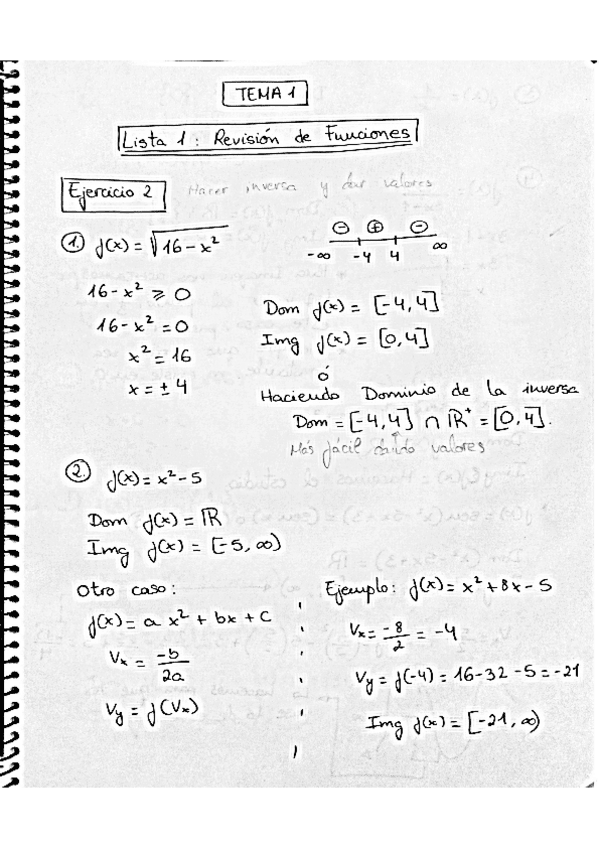 TEMA 1
Lista 1: Revisión de Funciones
Ejercicio 2 Hacer inversa y dar valores
1. f(x) = √16 - x²
⊖ ⊕ ⊖
-∞ -4 4 ∞
16 - x² ≥ 0
16 - x² = 0
x² = 16
x = ± 4
Dom f(x) = [-4, 4]
Img f(x) = [0, 4]
ó
Haciendo Dominio de la inversa
Dom = [-4, 4] ∩ ℝ⁺ = [0, 4].
Más fácil dando valores
2. f(x) = x² - 5
Dom f(x) = ℝ
Img f(x) = [-5, ∞)
Otro caso:
f(x) = a x² + bx + c
Vx = -b/2a
Vy = f(Vx)
Ejemplo: f(x) = x² + 8x - 5
Vx = -8/2 = -4
Vy = f(-4) = 16 - 32 - 5 = -21
Img f(x) = [-21, ∞)